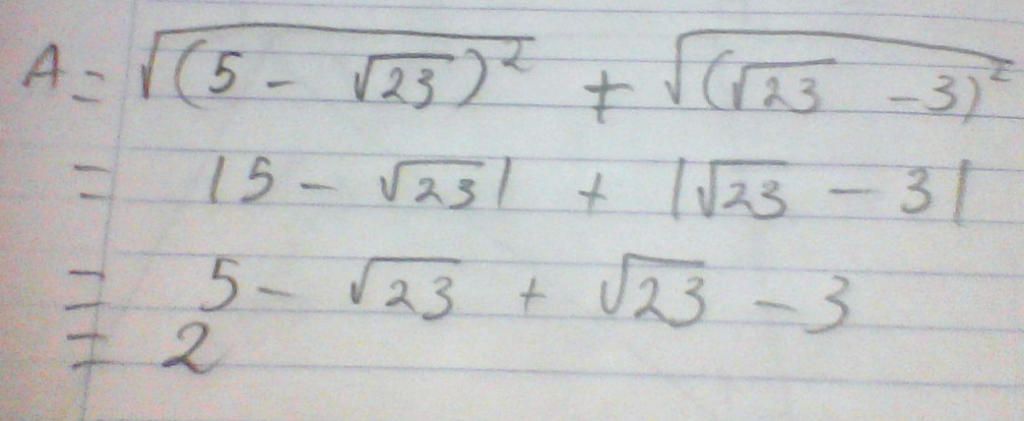 A = √(5 - √23)² + √(√23 - 3)²
= |5 - √23| + |√23 - 3|
= 5 - √23 + √23 - 3
= 2